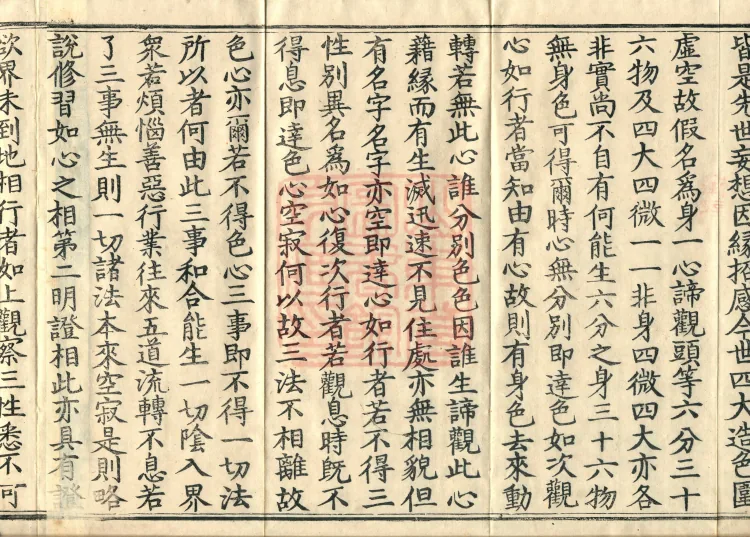 皆是先世妄想因緣招感今世四大造色圍
虛空故假名爲身一心諦觀頭等六分三十
六物及四大四微一一非身四微四大亦各
非實尚不自有何能生六分之身三十六物
無身色可得爾時心無分別即達色如次觀
心如行者當知由有心故則有身色去來動
轉若無此心誰分別色色因誰生諦觀此心
藉緣而有生滅迅速不見住處亦無相貌但
有名字名字亦空即達心如行者若不得三
性別異名爲如心復次行者若觀息時既不
得息即達色心空寂何以故三法不相離故
色心亦爾若不得色心三事即不得一切法
所以者何由此三事和合能生一切陰入界
衆若煩惱善惡行業往來五道流轉不息若
了三事無生則一切諸法本來空寂是則略
說修習如心之相第二明證相此亦具有證
欲界未到地相行者如上觀察三性悉不可